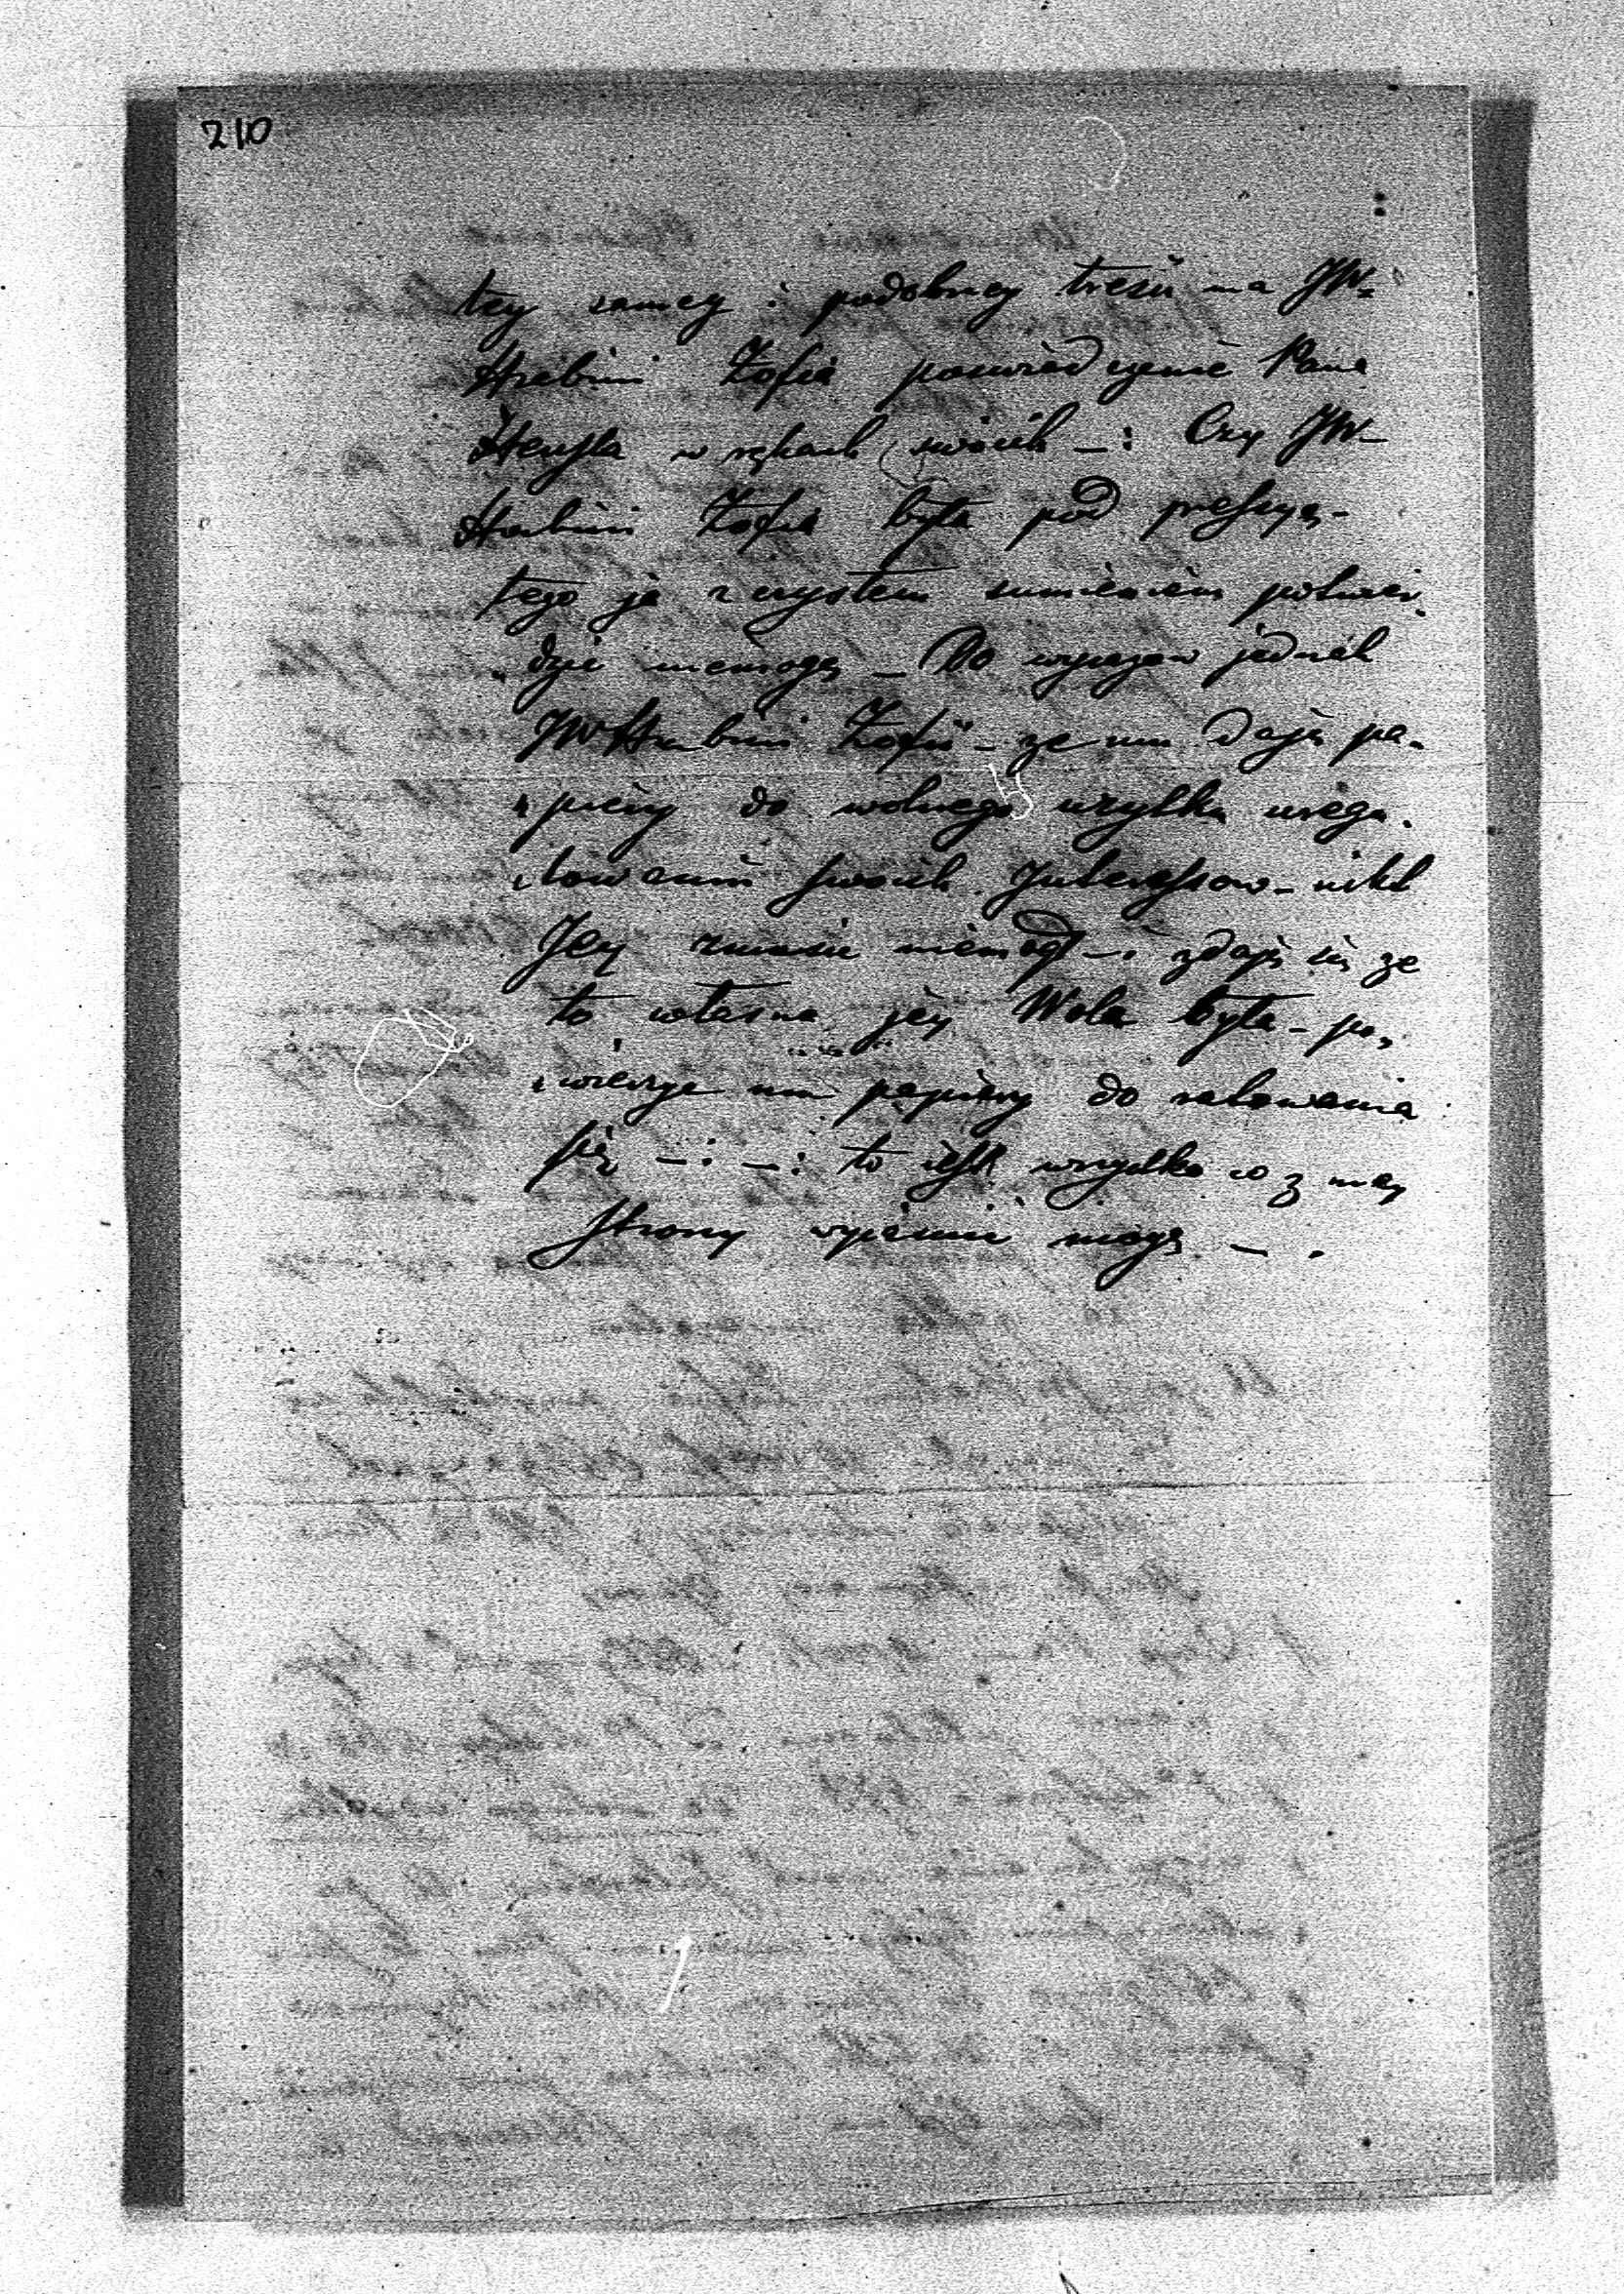 210
tey samey i podobney treści ma JW=
Hrabini Zofia poswiadczenie Pana
w rękach swoich —: Czy JW—
Hrabini Zofia była pod presyą-
tego ja z czystem sumieniem potwier„
„dzic niemogę — Do wyrazow jednak
JW Hrabini Zofii — ze mu daję pa„
„piery do wolnego uzytku urega„
„lowania swoich Interessow — nikt
Jey zmusic niemogł — i zdaję się ze
to własna jey Wola była — po„
„wierzyc mu papiery do ratowania
się —:—: to jest wszystko co z mey
Strony wyjasnic mogę — .